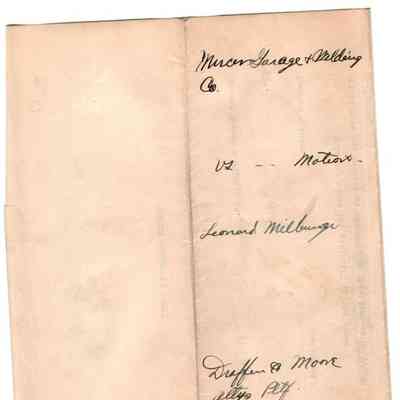 Mercer Garage & Welding
Co.
vs -- Motion.
Leonard
Draffen & Moore
Attys Pltf.